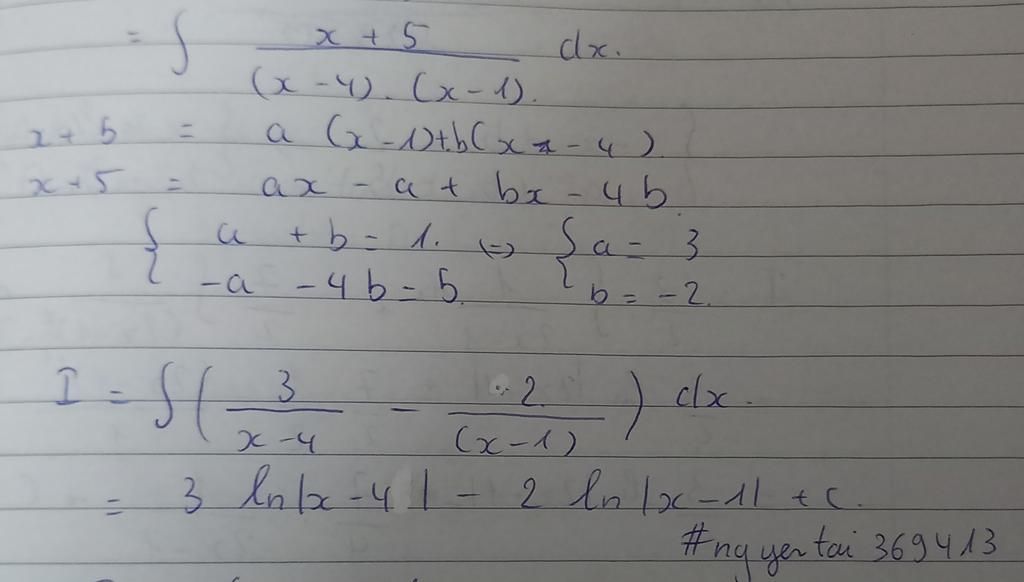 = ∫ (x + 5)/((x - 4).(x - 1)) dx.
x + 5 = a (x - 1) + b(x - 4)
x + 5 = ax - a + bx - 4b
{ a + b = 1. <=> { a = 3
{ -a - 4b = 5 { b = -2.
I = ∫( 3/(x - 4) - 2/(x - 1) ) dx.
= 3 ln|x - 4| - 2 ln|x - 1| + C.
#nguyentai369413